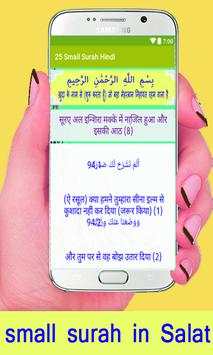 7:00
25 Small Surah Hindi
بِسْمِ اللَّهِ الرَّحْمَٰنِ الرَّحِيمِ
खुदा के नाम से (शुरू करता हूँ) जो बड़ा मेहरबान निहायत रहम वाला है
सूरए अल इन्शिरा मक्के में नाज़िल हुआ और
इसकी आठ (8)
94:1 أَلَمْ نَشْرَحْ لَكَ صَدْرَكَ
(ऐ रसूल) क्या हमने तुम्हारा सीना इल्म से
कुशादा नहीं कर दिया (जरूर किया) (1)
94:2 وَوَضَعْنَا عَنكَ وِزْرَكَ
और तुम पर से वह बोझ उतार दिया (2)
small surah in Salat